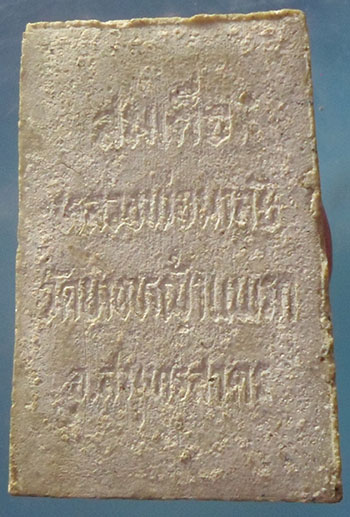 สมเด็จ
หลวงพ่อมาลัย
วัดบางหญ้าแพรก
จ.สมุทรสาคร